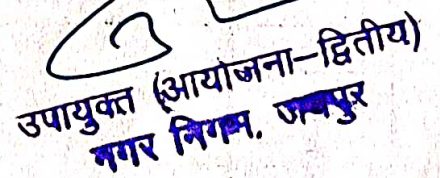 उपायुक्त (आयोजना–द्वितीय)
नगर निगम, जयपुर